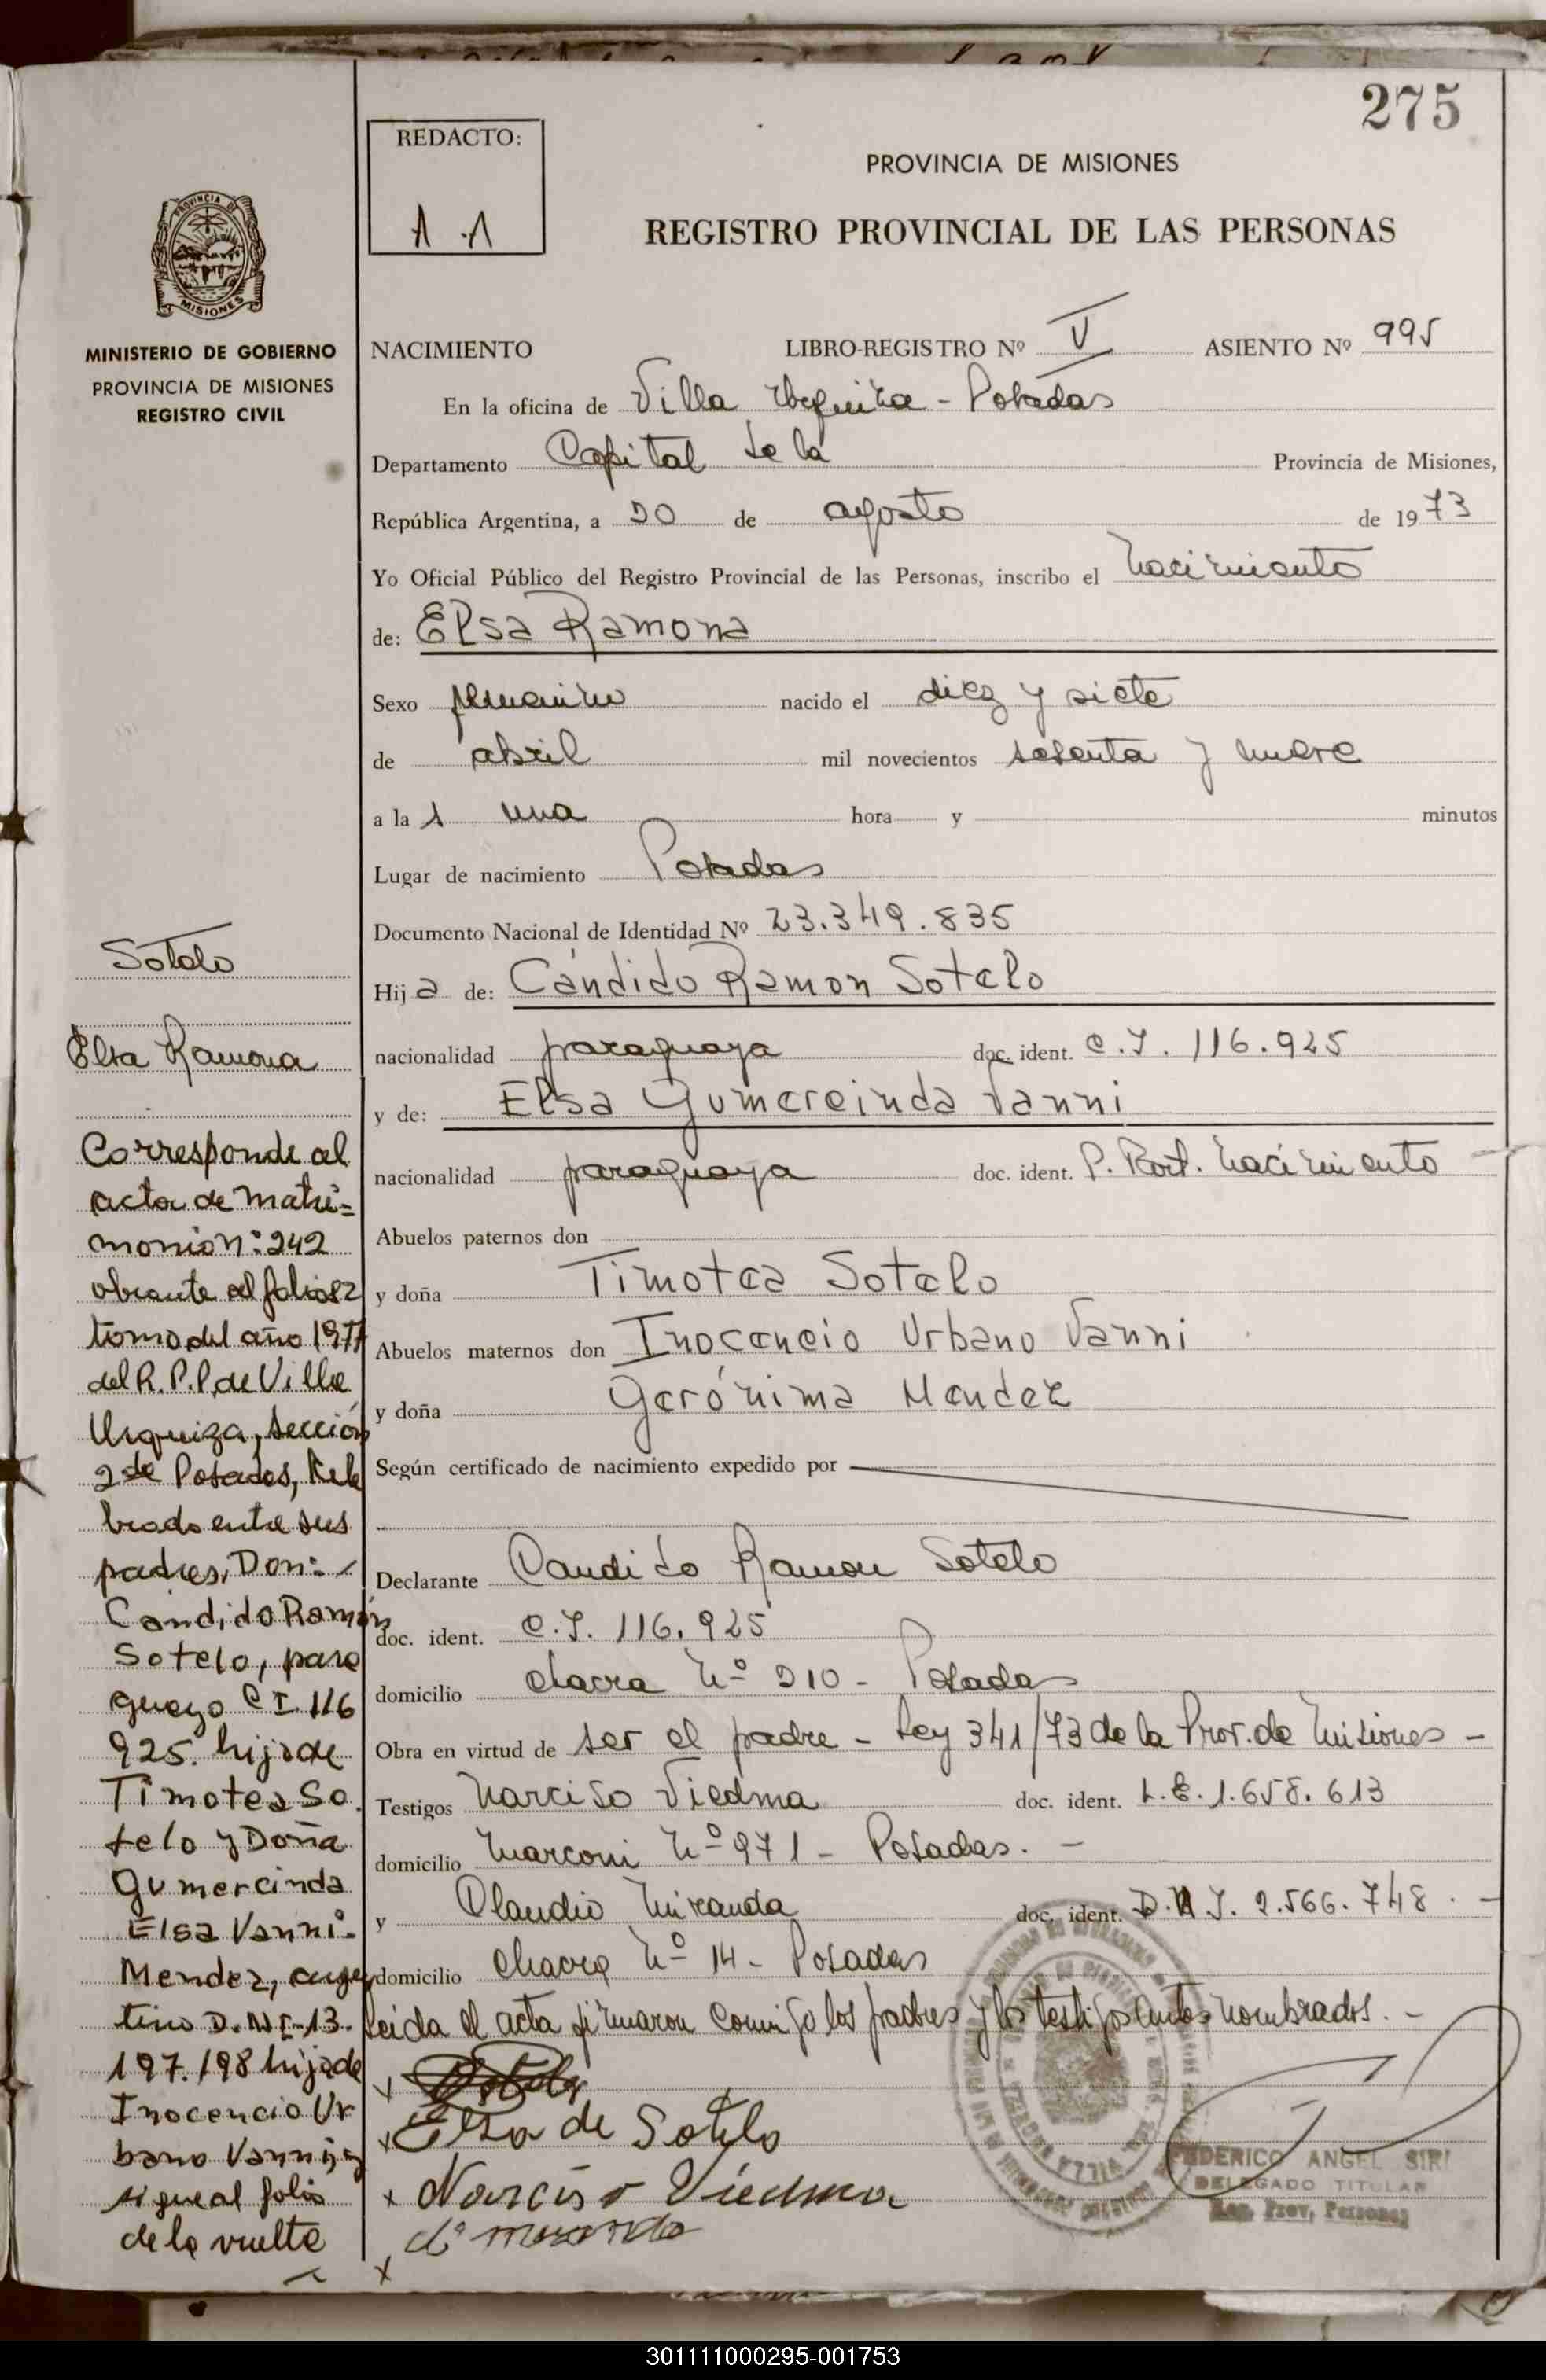 275
REDACTO:
A.A
PROVINCIA DE MISIONES
REGISTRO PROVINCIAL DE LAS PERSONAS
PROVINCIA DE
MISIONES
MINISTERIO DE GOBIERNO
PROVINCIA DE MISIONES
REGISTRO CIVIL
NACIMIENTO LIBRO-REGISTRO Nº V ASIENTO Nº 995
En la oficina de Villa Urquiza - Posadas
Departamento Capital de la Provincia de Misiones,
República Argentina, a 20 de agosto de 1973
Yo Oficial Público del Registro Provincial de las Personas, inscribo el nacimiento
de: Elsa Ramona
Sexo femenino nacido el diez y siete
de abril mil novecientos setenta y nueve
a la 1 una hora y minutos
Lugar de nacimiento Posadas
Documento Nacional de Identidad Nº 23.349.835
Hija de: Cándido Ramon Sotelo
nacionalidad paraguaya doc. ident. C.I. 116.925
y de: Elsa Gumercinda Vanni
nacionalidad paraguaya doc. ident. P. Part. nacimiento
Abuelos paternos don
y doña Timotea Sotelo
Abuelos maternos don Inocencio Urbano Vanni
y doña Gerónima Mendez
Según certificado de nacimiento expedido por
Declarante Candido Ramon Sotelo
doc. ident. C.I. 116.925
domicilio chacra Nº 210 - Posadas
Obra en virtud de ser el padre - Ley 341/73 de la Prov. de Misiones -
Testigos Narciso Viedma doc. ident. L.E. 1.658.613
domicilio Marconi Nº 971 - Posadas. -
y Claudio Miranda doc. ident. D.N.I. 2.566.748. -
domicilio Chacra Nº 14 - Posadas
Leida el acta firmaron conmigo los padres y los testigos antes nombrados. -
x Sotelo
x Elsa de Sotelo
x Narciso Viedma
x
FEDERICO ANGEL SIRI
DELEGADO TITULAR
Reg. Prov. Personas
Sotelo
Elsa Ramona
Corresponde al
acta de matri-
monio nº: 242
obrante al folio 82
tomo del año 1977
del R.P.P. de Villa
Urquiza, sección
2da de Posadas, cele
brado entre sus
padres, Don:
Candido Ramón
Sotelo, para
guayo C I. 116
925. hijo de
Timotea So
telo y Doña
Gumercinda
Elsa Vanni
Mendez, argen
tina D.N.I-13.
197.198 hija de
Inocencio Ur
bano Vanni y
sigue al folio
de la vuelta
301111000295-001753